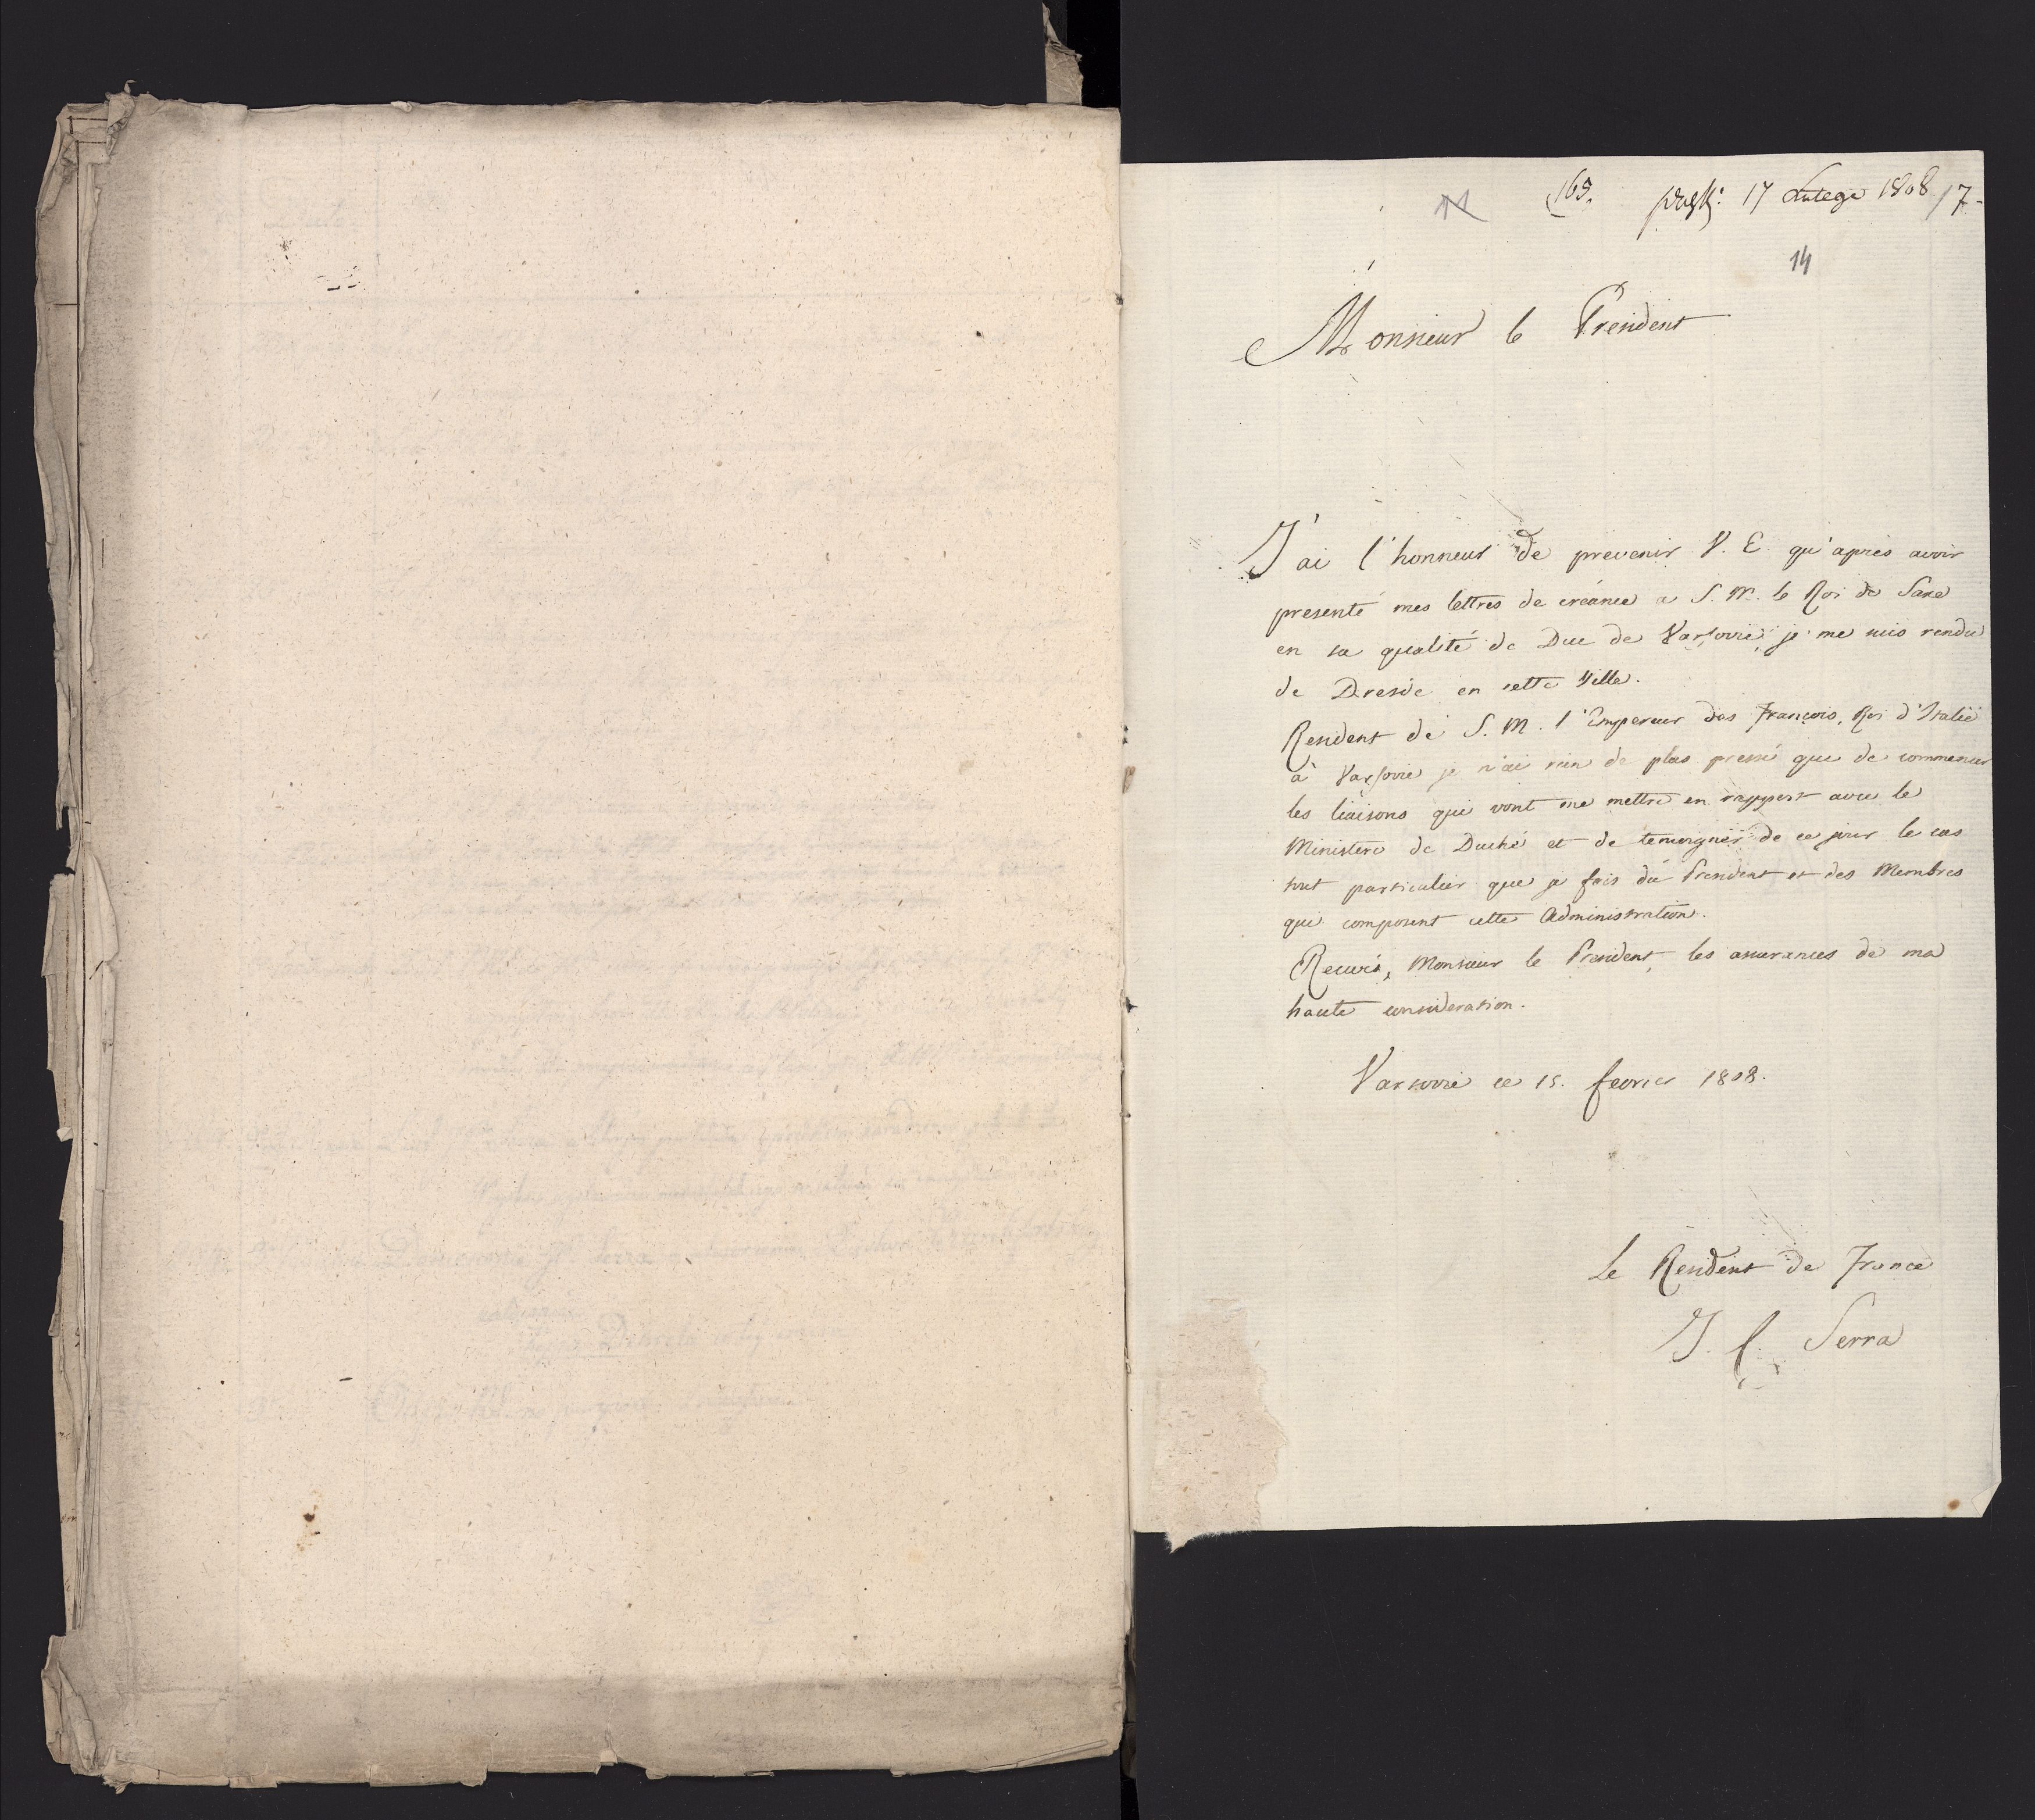 165. 17 Lutego 1808 / 7-
14
Monsieur le President
J'ai l'honneur de prevenir V. E. qu'après avoir
presenté mes lettres de créance a S. M. le Roi de Saxe
en sa qualité de Duc de Varsovie, je me suis rendu
de Dresde en cette Ville.
Resident de S. M. l'Empereur des François, Roi d'Italie
à Varsovie je n'ai rien de plus pressé que de commencer
les liaisons qui vont me mettre en rapport avec le
Ministere de Duché et de temoigner de ce jour le cas
tout particulier que je fais du President et des Membres
qui composent cette Administration.
Recevés, Monsieur le President, les assurances de ma
haute consideration.
Varsovie ce 15. fevrier 1808.
Le Resident de France
J. C. Serra